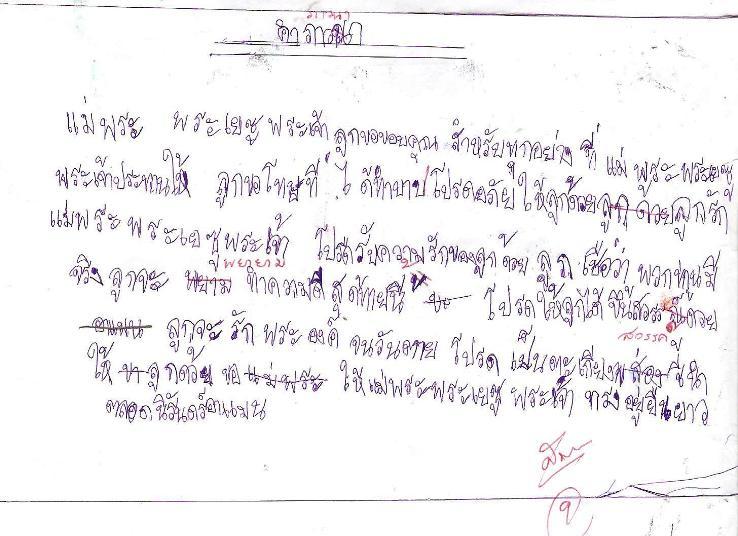 ภาวนา
คำภาวนา
แม่พระ พระเยซู พระเจ้า ลูกขอขอบคุณ สำหรับทุกอย่าง ที่ แม่พระ พระเยซู
พระเจ้าประทานให้ ลูกขอโทษที่ ได้ทำบาปโปรดอภัยให้ลูกด้วย ลูก ด้วย ลูกรัก
แม่พระ พระเยซู พระเจ้า โปรดรับความรักของลูกด้วย ลูก เชื่อว่า พวกท่านมี
พยายาม
จริง ลูกจะ ทำความดี สุดท้ายนี้ โปรดให้ลูกได้ ขึ้น ด้วย
สวรรค์
อาเมน ลูกจะ รัก พระองค์ จนวันตาย โปรด เป็นตะเกียงส่อง ชี้นำ
ให้ ลูกด้วย ขอ แม่พระ ให้แม่พระ พระเยซู พระเจ้า ทรงอยู่ยืนยาว
ตลอดนิรันดร์อาเมน